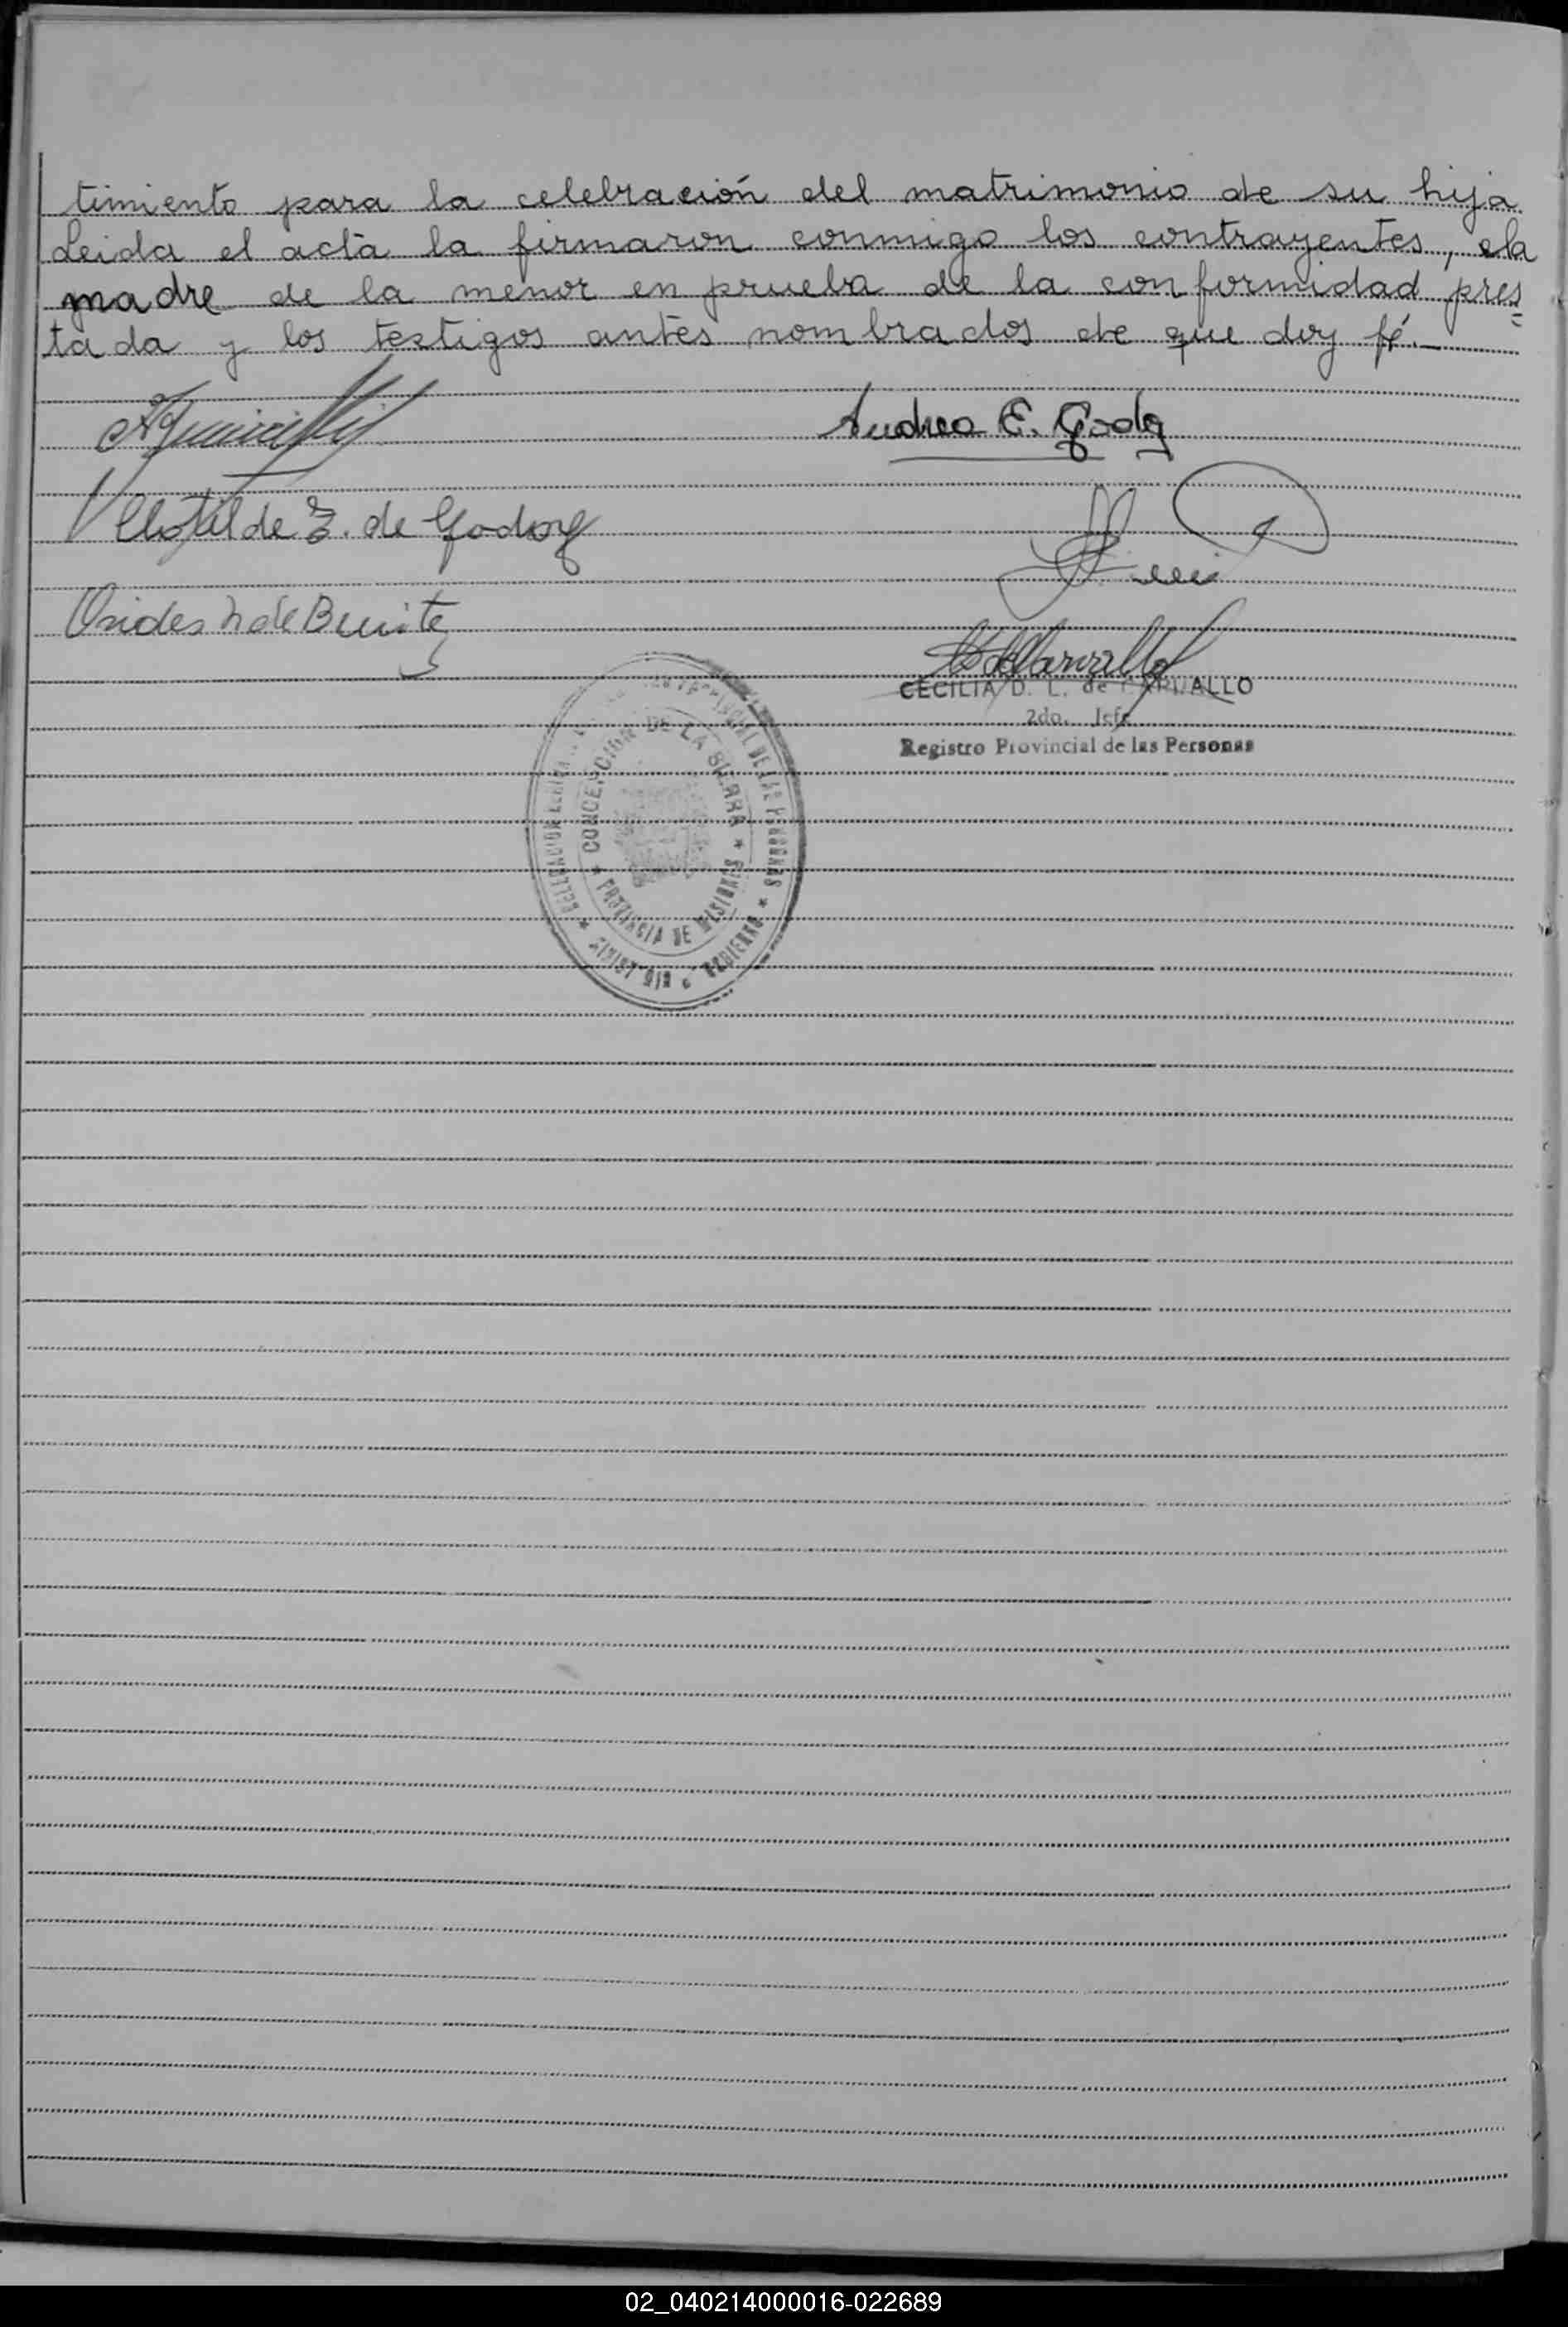 timiento para la celebración del matrimonio de su hija.
Leida el acta la firmaron conmigo los contrayentes, la
madre de la menor en prueba de la conformidad pres=
tada y los testigos antes nombrados de que doy fé.-
Andrea E. Godoy
Clotilde Z. de Godoy
de Benitez
CECILIA D. L. de CARVALLO
2do. Jefe
Registro Provincial de las Personas
CONCEPCION DE LA SIERRA * PROVINCIA DE MISIONES *
02_040214000016-022689